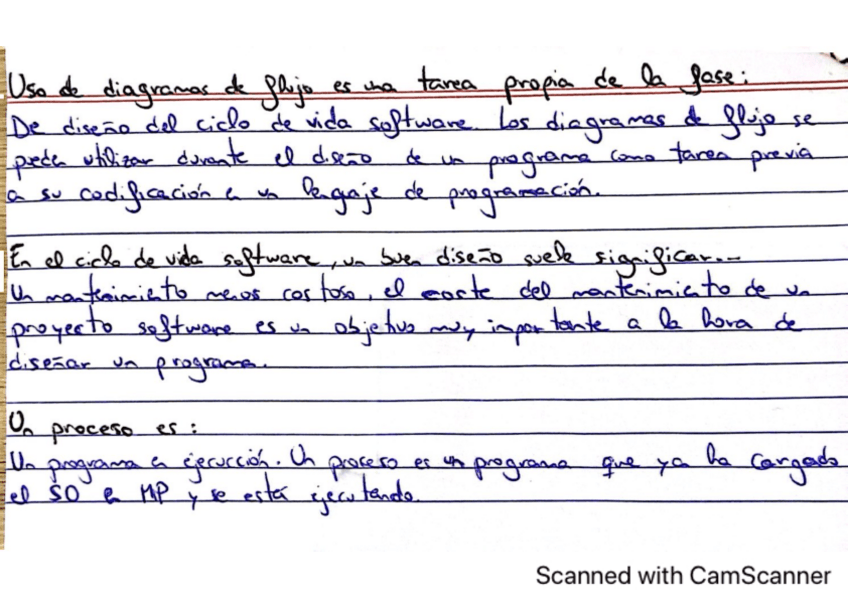 Uso de diagramas de flujo es una tarea propia de la fase:
De diseño del ciclo de vida software. Los diagramas de flujo se
pueden utilizar durante el diseño de un programa como tarea previa
a su codificación en un lenguaje de programación.
En el ciclo de vida software, un buen diseño suele significar...
Un mantenimiento menos costoso, el coste del mantenimiento de un
proyecto software es un objetivo muy importante a la hora de
diseñar un programa.
Un proceso es:
Un programa en ejecucción. Un proceso es un programa que ya ha cargado
el SO en MP y se está ejecutando.
Scanned with CamScanner